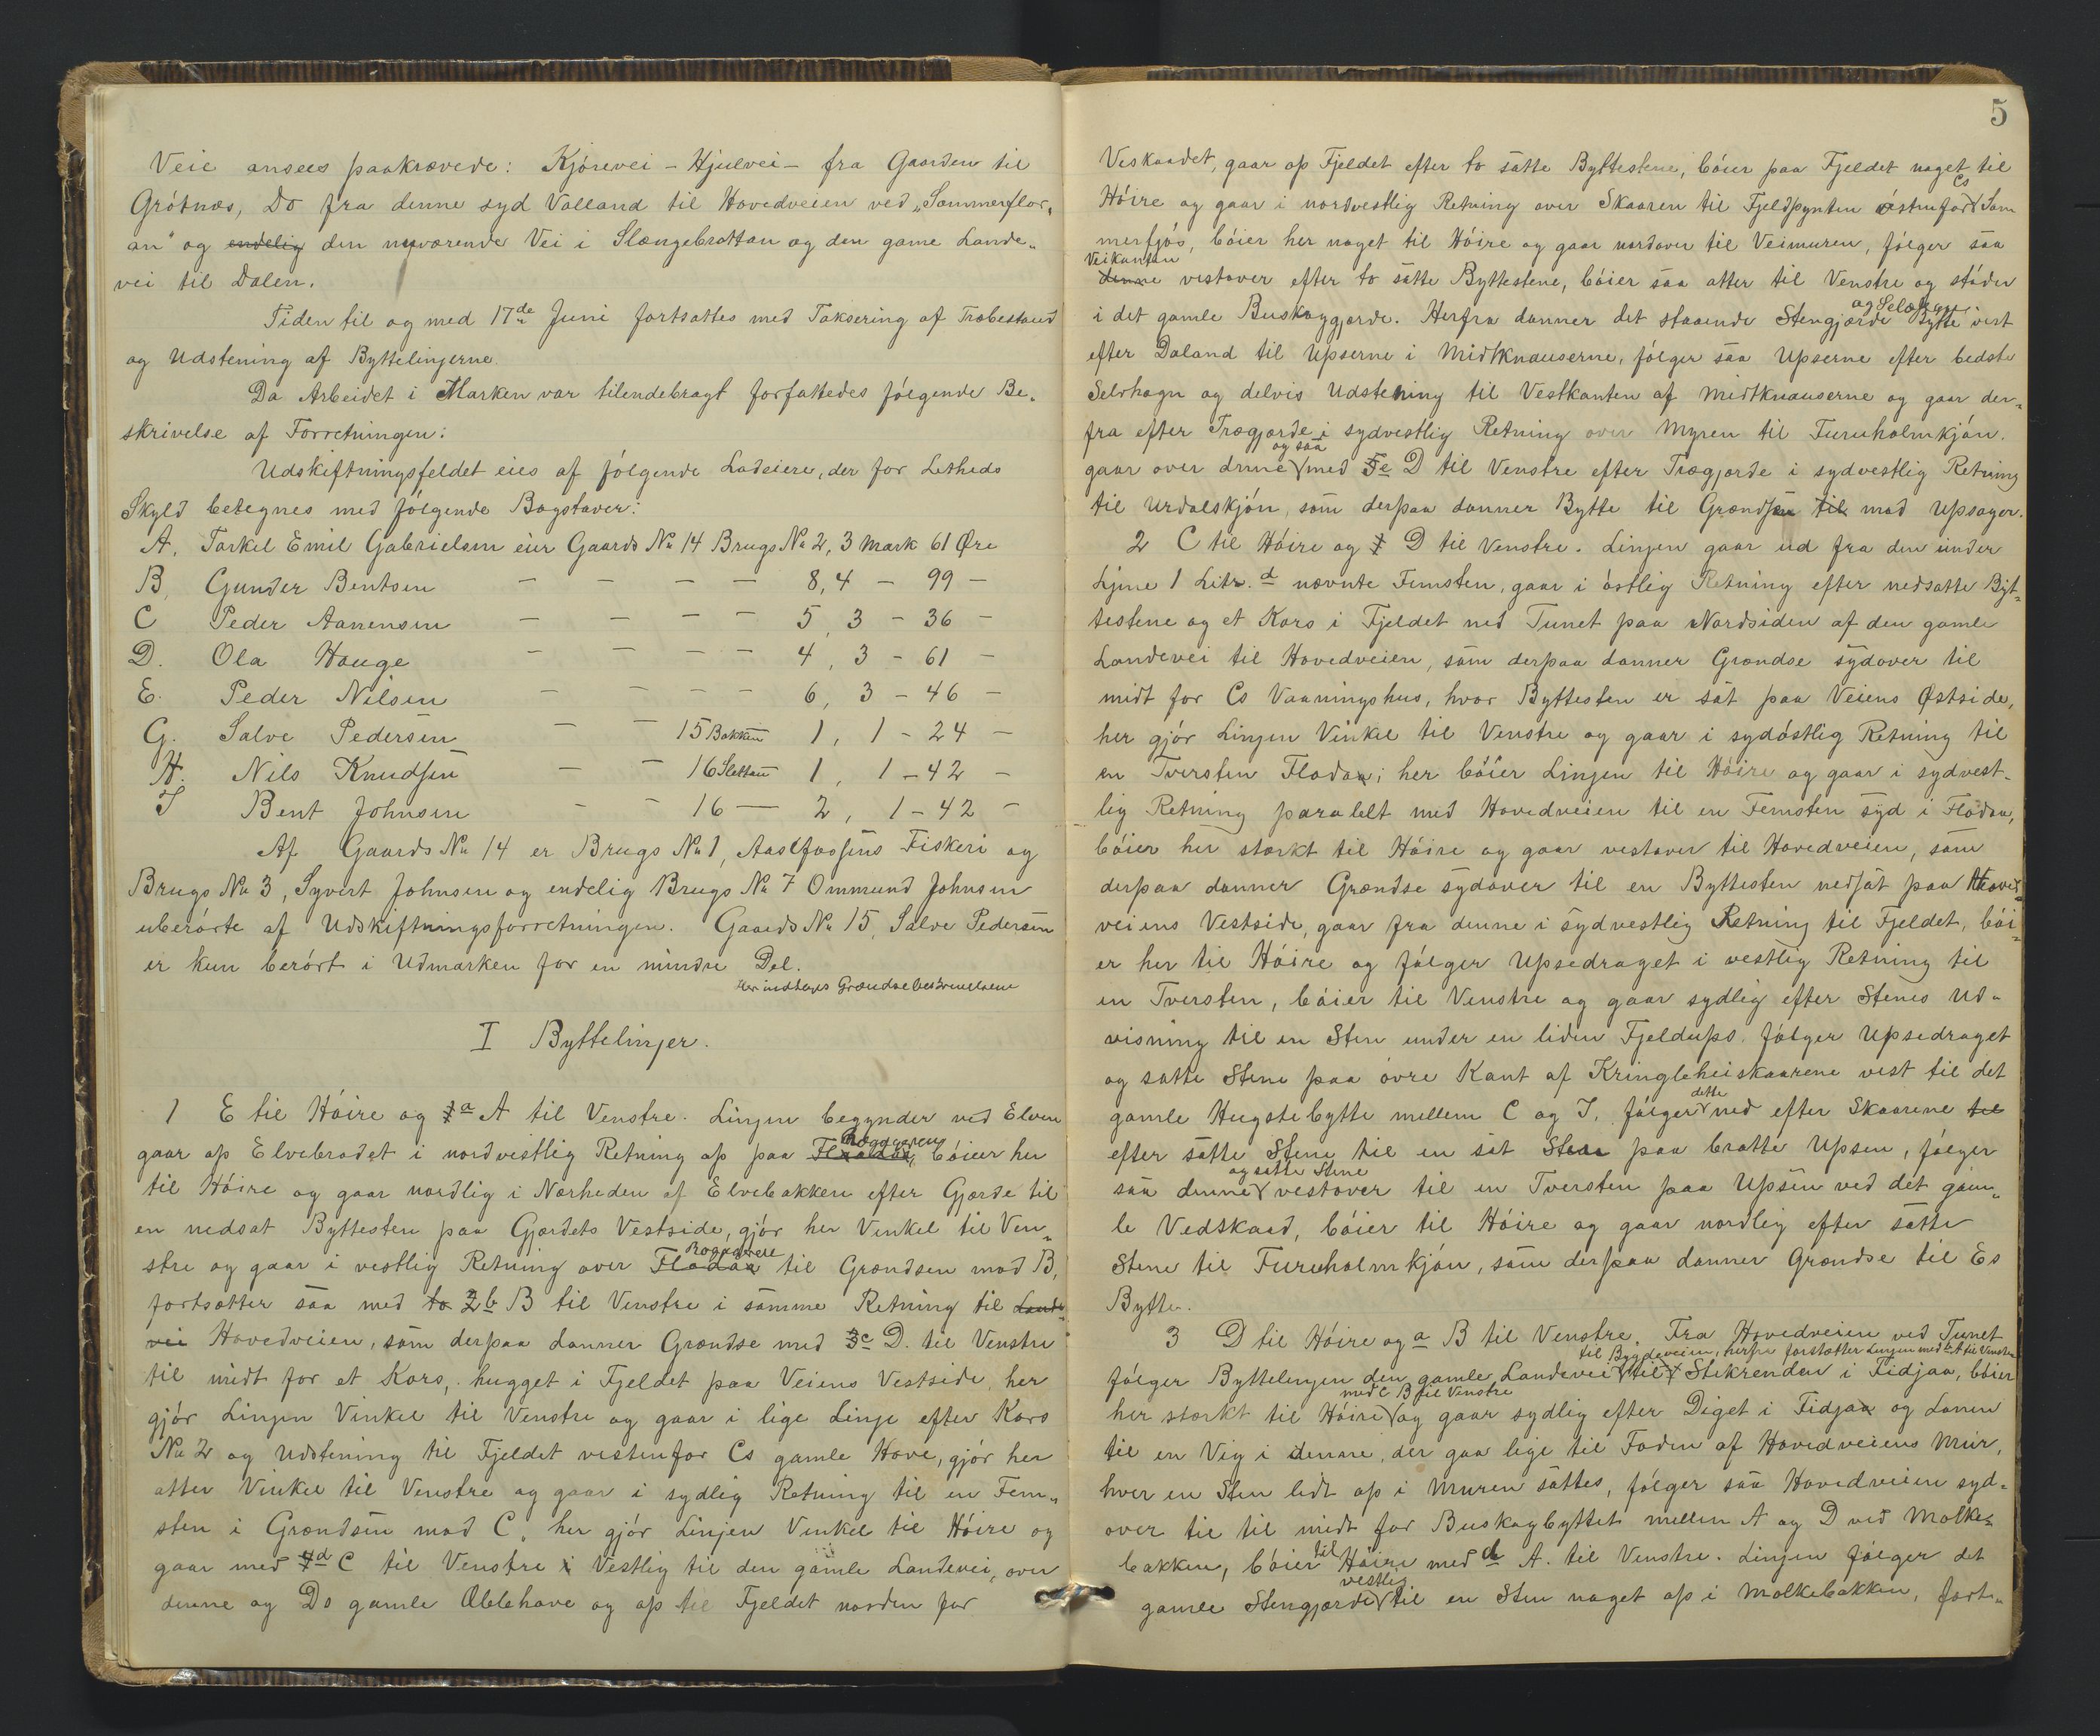 Veie ansees paakrævede: Kjørevei - Hjulvei - fra Gaarden til
Grøtnæs, Do fra denne syd Valland til Hovedveien ved „Sommerflor„
an" og endelig den nuværende Vei i Slængebrattan og den game Lande„
vei til Dalen.
Tiden til og med 17de Juni fortsattes med Taksering af Træbestand
og Udstening af Byttelinjerne.
Da Arbeidet i Marken var tilendebragt forfattedes følgende Be„
skrivelse af Forretningen:
Udskiftningsfeldet eies af følgende Lodeiere, der for Letheds
Skyld betegnes med følgende Bogstaver:
A, Tarkel Emil Gabrielsen eier Gaards No 14 Brugs No 2, 3 Mark 61 Øre
B, Gunder Bentsen — — — — 8, 4 — 99 —
C Peder Aanensen — — — — 5, 3 — 36 —
D. Ola Hauge — — — — 4, 3 — 61 —
E. Peder Nilsen — — — — 6, 3 — 46 —
G. Salve Pedersen — — 15 Bakken 1, 1 — 24 —
H. Nils Knudsen — — 16 Sletten 1, 1 — 42 —
I Bent Johnsen — — 16 — 2, 1 — 42 —
Af Gaards No 14 er Brugs No 1, Aaslfossens Fiskeri og
Brugs No 3, Syvert Johnsen og endelig Brugs No 7 Ommund Johnsen
uberørte af Udskiftningsforretningen. Gaards No 15, Salve Pedersen
er kun berørt i Udmarken for en mindre Del.
Her indtages Grændsebeskrivelsene
I Byttelinjer.
1 E til Høire og a A til Venstre. Linjen begynder ved Elven
gaar op Elvebradet i nordvestlig Retning op paa Fladan, bøier her
til Høire og gaar nordlig i Nærheden af Elvebakken efter Gjærde til
en nedsat Byttesten paa Gjærdets Vestside, gjør her Vinkel til Ven„
stre og gaar i vestlig Retning over Fladan til Grændsen mod B,
fortsætter saa med to 2 b B til Venstre i samme Retning til Lande
vei Hovedveien, som derpaa danner Grændse med 3 c D. til Venstre
til midt for et Kors, hugget i Fjeldet paa Veiens Vestside, her
gjør Linjen Vinkel til Venstre og gaar i lige Linje efter Kors
No 2 og Udstening til Fjeldet vestenfor Cs gamle Have, gjør her
atter Vinkel til Venstre og gaar i sydlig Retning til en Fem„
sten i Grændsen mod C, her gjør Linjen Vinkel til Høire og
gaar med 4 d C til Venstre i Vestlig til den gamle Landevei, over
denne og Ds gamle Æblehave og op til Fjeldet norden for
5
Veskaadet, gaar op Fjeldet efter to satte Byttestene, bøier paa Fjeldet noget til
Cs
Høire og gaar i nordvestlig Retning over Skaaren til Fjeldpynten østenfor Som
merfjøs, bøier her noget til Høire og gaar nordover til Veimuren, følger saa
Veikanten
denne vestover efter to satte Byttestene, bøier saa atter til Venstre og støder
og Selvhagn
i det gamle Buskaggjærde. Herfra danner det staaende Stengjærde Bytte vest
efter Daland til Upserne i Midtknauserne, følger saa Upserne efter bedste
Selvhagn og delvis Udstening til Vestkanten af Midtknauserne og gaar der„
fra efter Trægjærde i sydvestlig Retning over Myren til Furuholmkjøn.
og saa
gaar over denne med 5 e D til Venstre efter Trægjærde i sydvestlig Retning
til Urdalskjøn, som derpaa danner Bytte til Grændsen til mod Upsager.
2 C til Høire og 1 D til Venstre. Linjen gaar ud fra den under
Linje 1 Litr. d nævnte Femsten, gaar i østlig Retning efter nedsatte Byt„
testene og et Kors i Fjeldet ned Tunet paa Nordsiden af den gamle
Landevei til Hovedveien, som derpaa danner Grændse sydover til
midt for Cs Vaaningshus, hvor Byttesten er sat paa Veiens Østside,
her gjør Linjen Vinkel til Venstre og gaar i sydøstlig Retning til
en Tversten Fladan; her bøier Linjen til Høire og gaar i sydvest„
lig Retning paralelt med Hovedveien til en Femsten syd i Fladan,
bøier her stærkt til Høire og gaar vestover til Hovedveien, som
derpaa danner Grændse sydover til en Byttesten nedsat paa Hoved„
veiens Vestside, gaar fra denne i sydvestlig Retning til Fjeldet, bøi„
er her til Høire og følger Upsedraget i vestlig Retning til
en Tversten, bøier til Venstre og gaar sydlig efter Stenes Ud„
visning til en Sten under en liden Fjeldups, følger Upsedraget
og satte Stene paa øvre Kant af Kringleheiskaarene vest til det
dette
gamle Hugstebytte mellem C og I, følger ned efter Skaarene til
efter satte Stene til en sat Sten paa bratte Upsen, følger
og satte Stene
saa denne vestover til en Tversten paa Upsen ved det gam„
le Vedskaad, bøier til Høire og gaar nordlig efter satte
Stene til Furuholmkjøn, som derpaa danner Grændse til Es
Bytte.
3 D til Høire og a B til Venstre. Fra Hovedveien ved Tunet
til Bygdeveien, herfra forstætter Linjen med b A til Venstre
følger Byttelinjen den gamle Landevei til Stikrenden i Fidjaa, bøier
med c B til Venstre
her stærkt til Høire og gaar sydlig efter Diget i Fidjaa og Lonen
til en Vig i denne, der gaa lige til Foden af Hovedveiens Mur,
hvor en Sten lidt op i Muren sattes, følger saa Hovedveien syd„
over til til midt for Buskagbyttet mellem A og D ved Molke„
bakken, bøier til Høire med d A. til Venstre. Linjen følger det
vestlig
gamle Stengjærde til en Sten noget op i Molkebakken, fort„